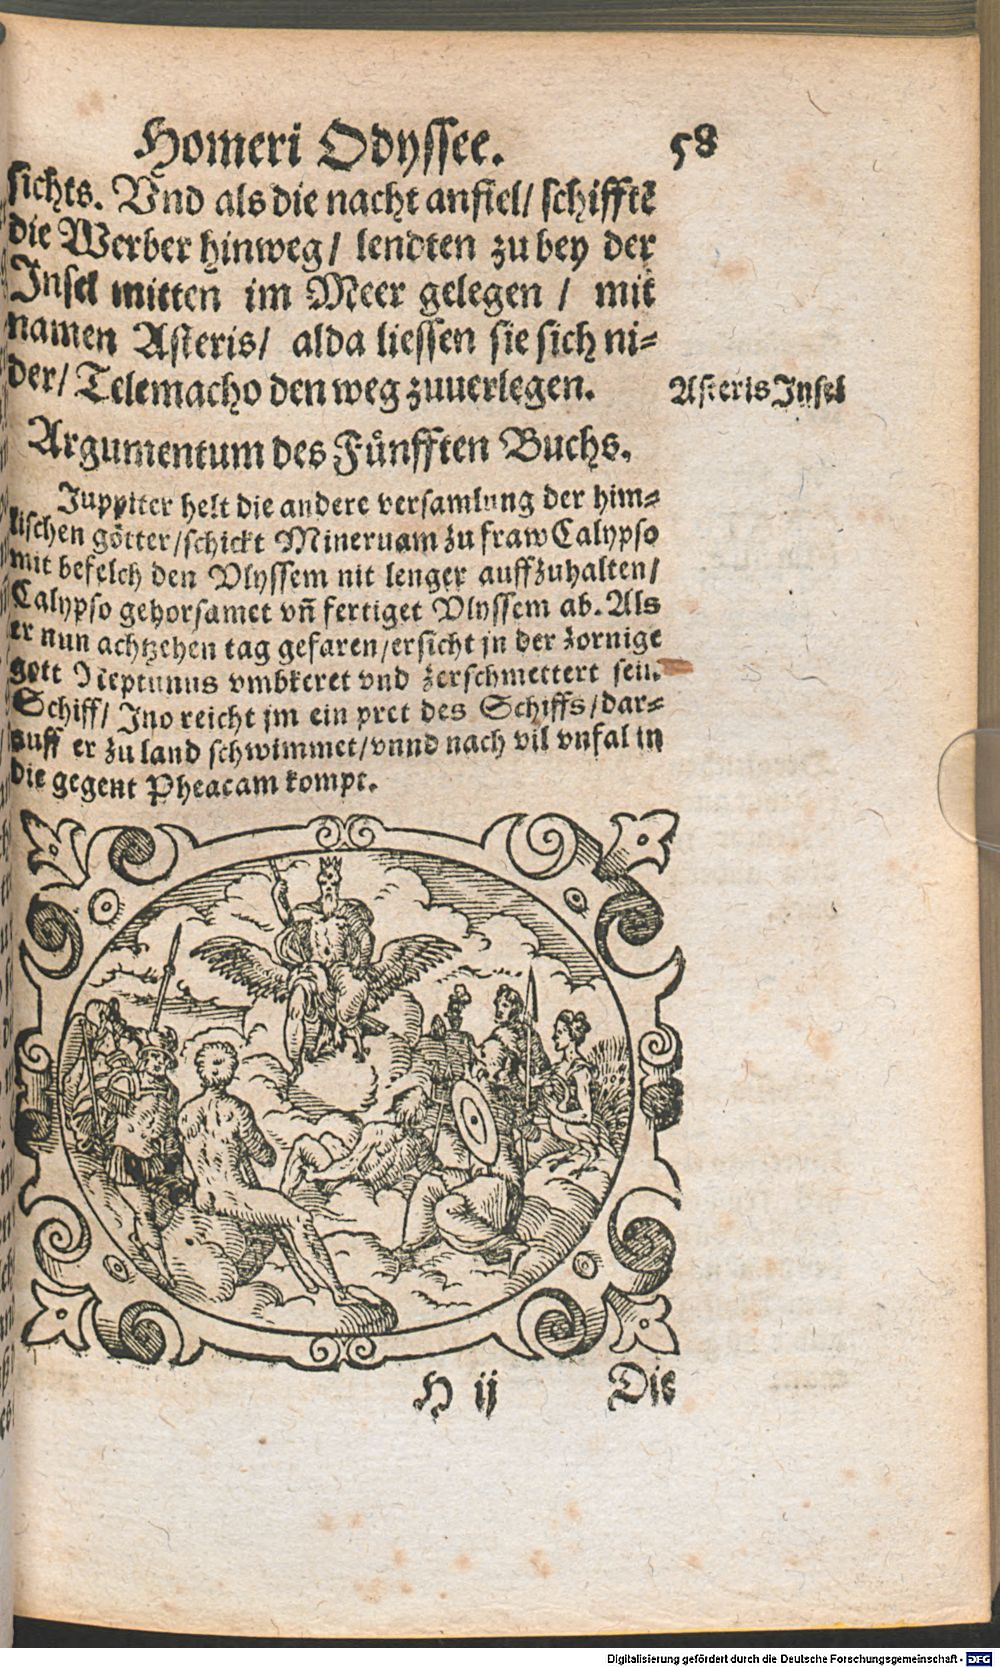 Homeri Odyssee. 58
sichts. Vnd als die nacht anfiel/ schifftē
die Werber hinweg/ lendten zu bey der
Insel mitten im Meer gelegen / mit
namen Asteris/ alda liessen sie sich ni-
der/ Telemacho den weg zuuerlegen.
Asteris Insel
Argumentum des Fünfften Buchs.
Juppiter helt die andere versamlung der him-
lischen götter/schickt Mineruam zu fraw Calypso
mit befelch den Vlyssem nit lenger auffzuhalten/
Calypso gehorsamet vñ fertiget Vlyssem ab. Als
er nun achtzehen tag gefaren/ersicht jn der zornige
gott Neptunus vmbkeret vnd zerschmettert sein
Schiff/ Ino reicht jm ein pret des Schiffs/dar-
auff er zu land schwimmet/vnnd nach vil vnfal in
die gegent Pheacam kompt.
H ij Die
Digitalisierung gefördert durch die Deutsche Forschungsgemeinschaft - DFG